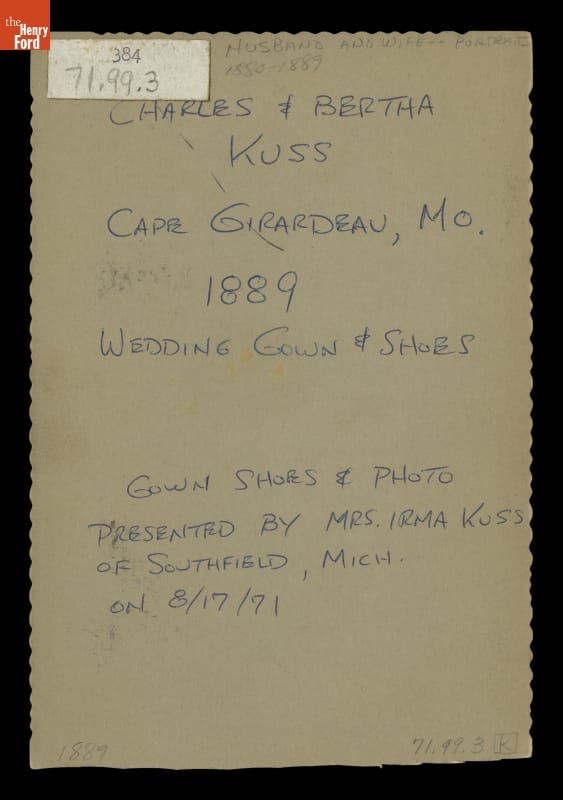 the
Henry
Ford
384
71.99.3
HUSBAND AND WIFE -- PORTRAIT
1880-1889
CHARLES & BERTHA
KUSS
CAPE GIRARDEAU, MO.
1889
WEDDING GOWN & SHOES
GOWN SHOES & PHOTO
PRESENTED BY MRS. IRMA KUSS
OF SOUTHFIELD, MICH.
ON 8/17/71
1889
71.99.3 K